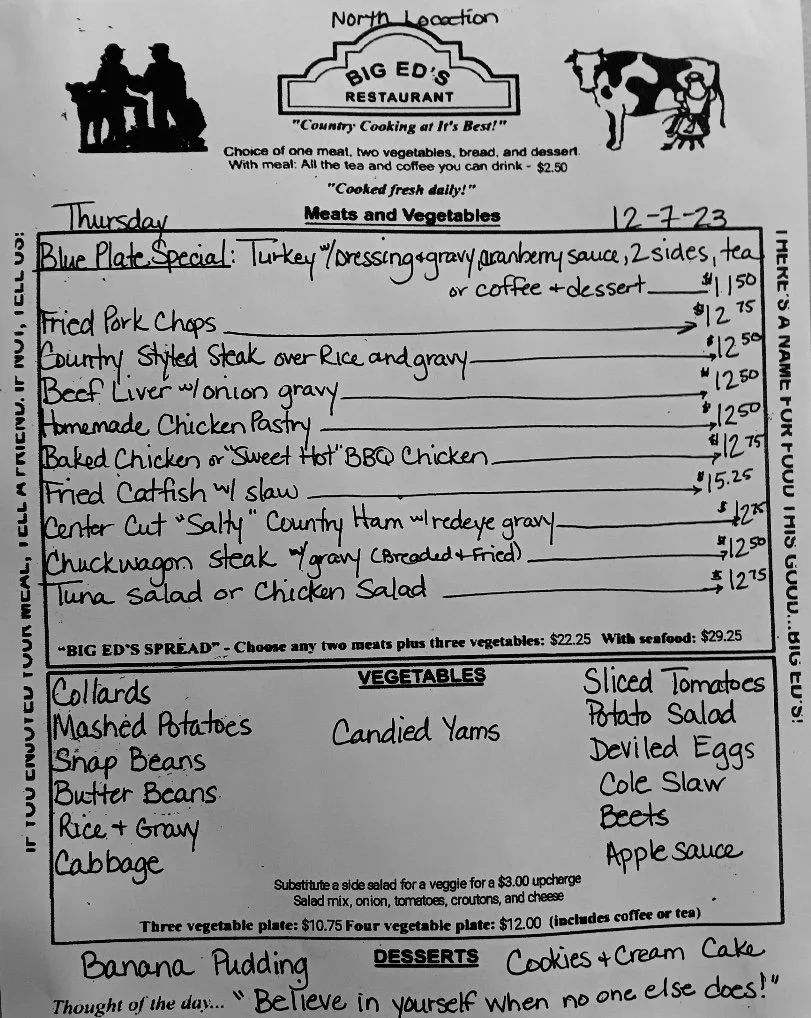 North Location
BIG ED'S
RESTAURANT
"Country Cooking at It's Best!"
Choice of one meat, two vegetables, bread, and dessert.
With meal: All the tea and coffee you can drink - $2.50
"Cooked fresh daily!"
Thursday Meats and Vegetables 12-7-23
Blue Plate Special: Turkey w/Dressing+gravy, cranberry sauce, 2 sides, tea
or coffee + dessert $11.50
Fried Pork Chops $12.75
Country Styled Steak over Rice and gravy $12.50
Beef Liver w/onion gravy $12.50
Homemade Chicken Pastry $12.50
Baked Chicken or "Sweet Hot" BBQ Chicken $12.75
Fried Catfish w/ slaw $15.25
Center Cut "Salty" Country Ham w/redeye gravy $12.75
Chuckwagon Steak w/gravy (Breaded + Fried) $12.50
Tuna Salad or Chicken Salad $12.75
"BIG ED'S SPREAD" - Choose any two meats plus three vegetables: $22.25 With seafood: $29.25
VEGETABLES
Collards
Mashed Potatoes
Snap Beans
Butter Beans
Rice + Gravy
Cabbage
Candied Yams
Sliced Tomatoes
Potato Salad
Deviled Eggs
Cole Slaw
Beets
Apple Sauce
Substitute a side salad for a veggie for a $3.00 upcharge
Salad mix, onion, tomatoes, croutons, and cheese
Three vegetable plate: $10.75 Four vegetable plate: $12.00 (includes coffee or tea)
DESSERTS
Banana Pudding
Cookies + Cream Cake
Thought of the day... "Believe in yourself when no one else does!"
IF YOU ENJOYED YOUR MEAL, TELL A FRIEND. IF NOT, TELL US!
THERE'S A NAME FOR FOOD THIS GOOD...BIG ED'S!